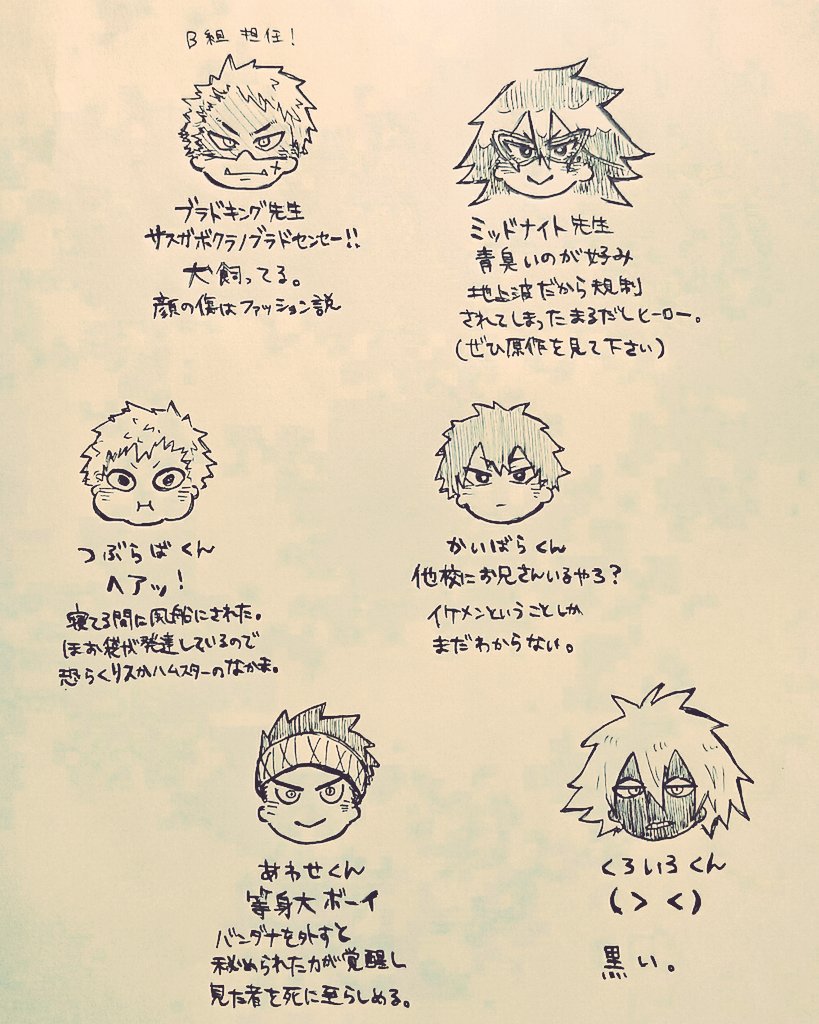 B組 担任!
ブラドキング先生
サスガボクラノブラドセンセー!!
犬飼ってる。
顔の傷はファッション説
ミッドナイト先生
青臭いのが好み
地上波だから規制
されてしまったまるだしヒーロー。
(ぜひ原作を見て下さい)
つぶらばくん
ヘアッ!
寝てる間に風船にされた。
ほお袋が発達しているので
恐らくリスかハムスターのなかま。
かいばらくん
他校にお兄さんいるやろ?
イケメンということしか
まだわからない。
あわせくん
等身大ボーイ
バンダナを外すと
秘められた力が覚醒し
見た者を死に至らしめる。
くろいろくん
(><)
黒い。